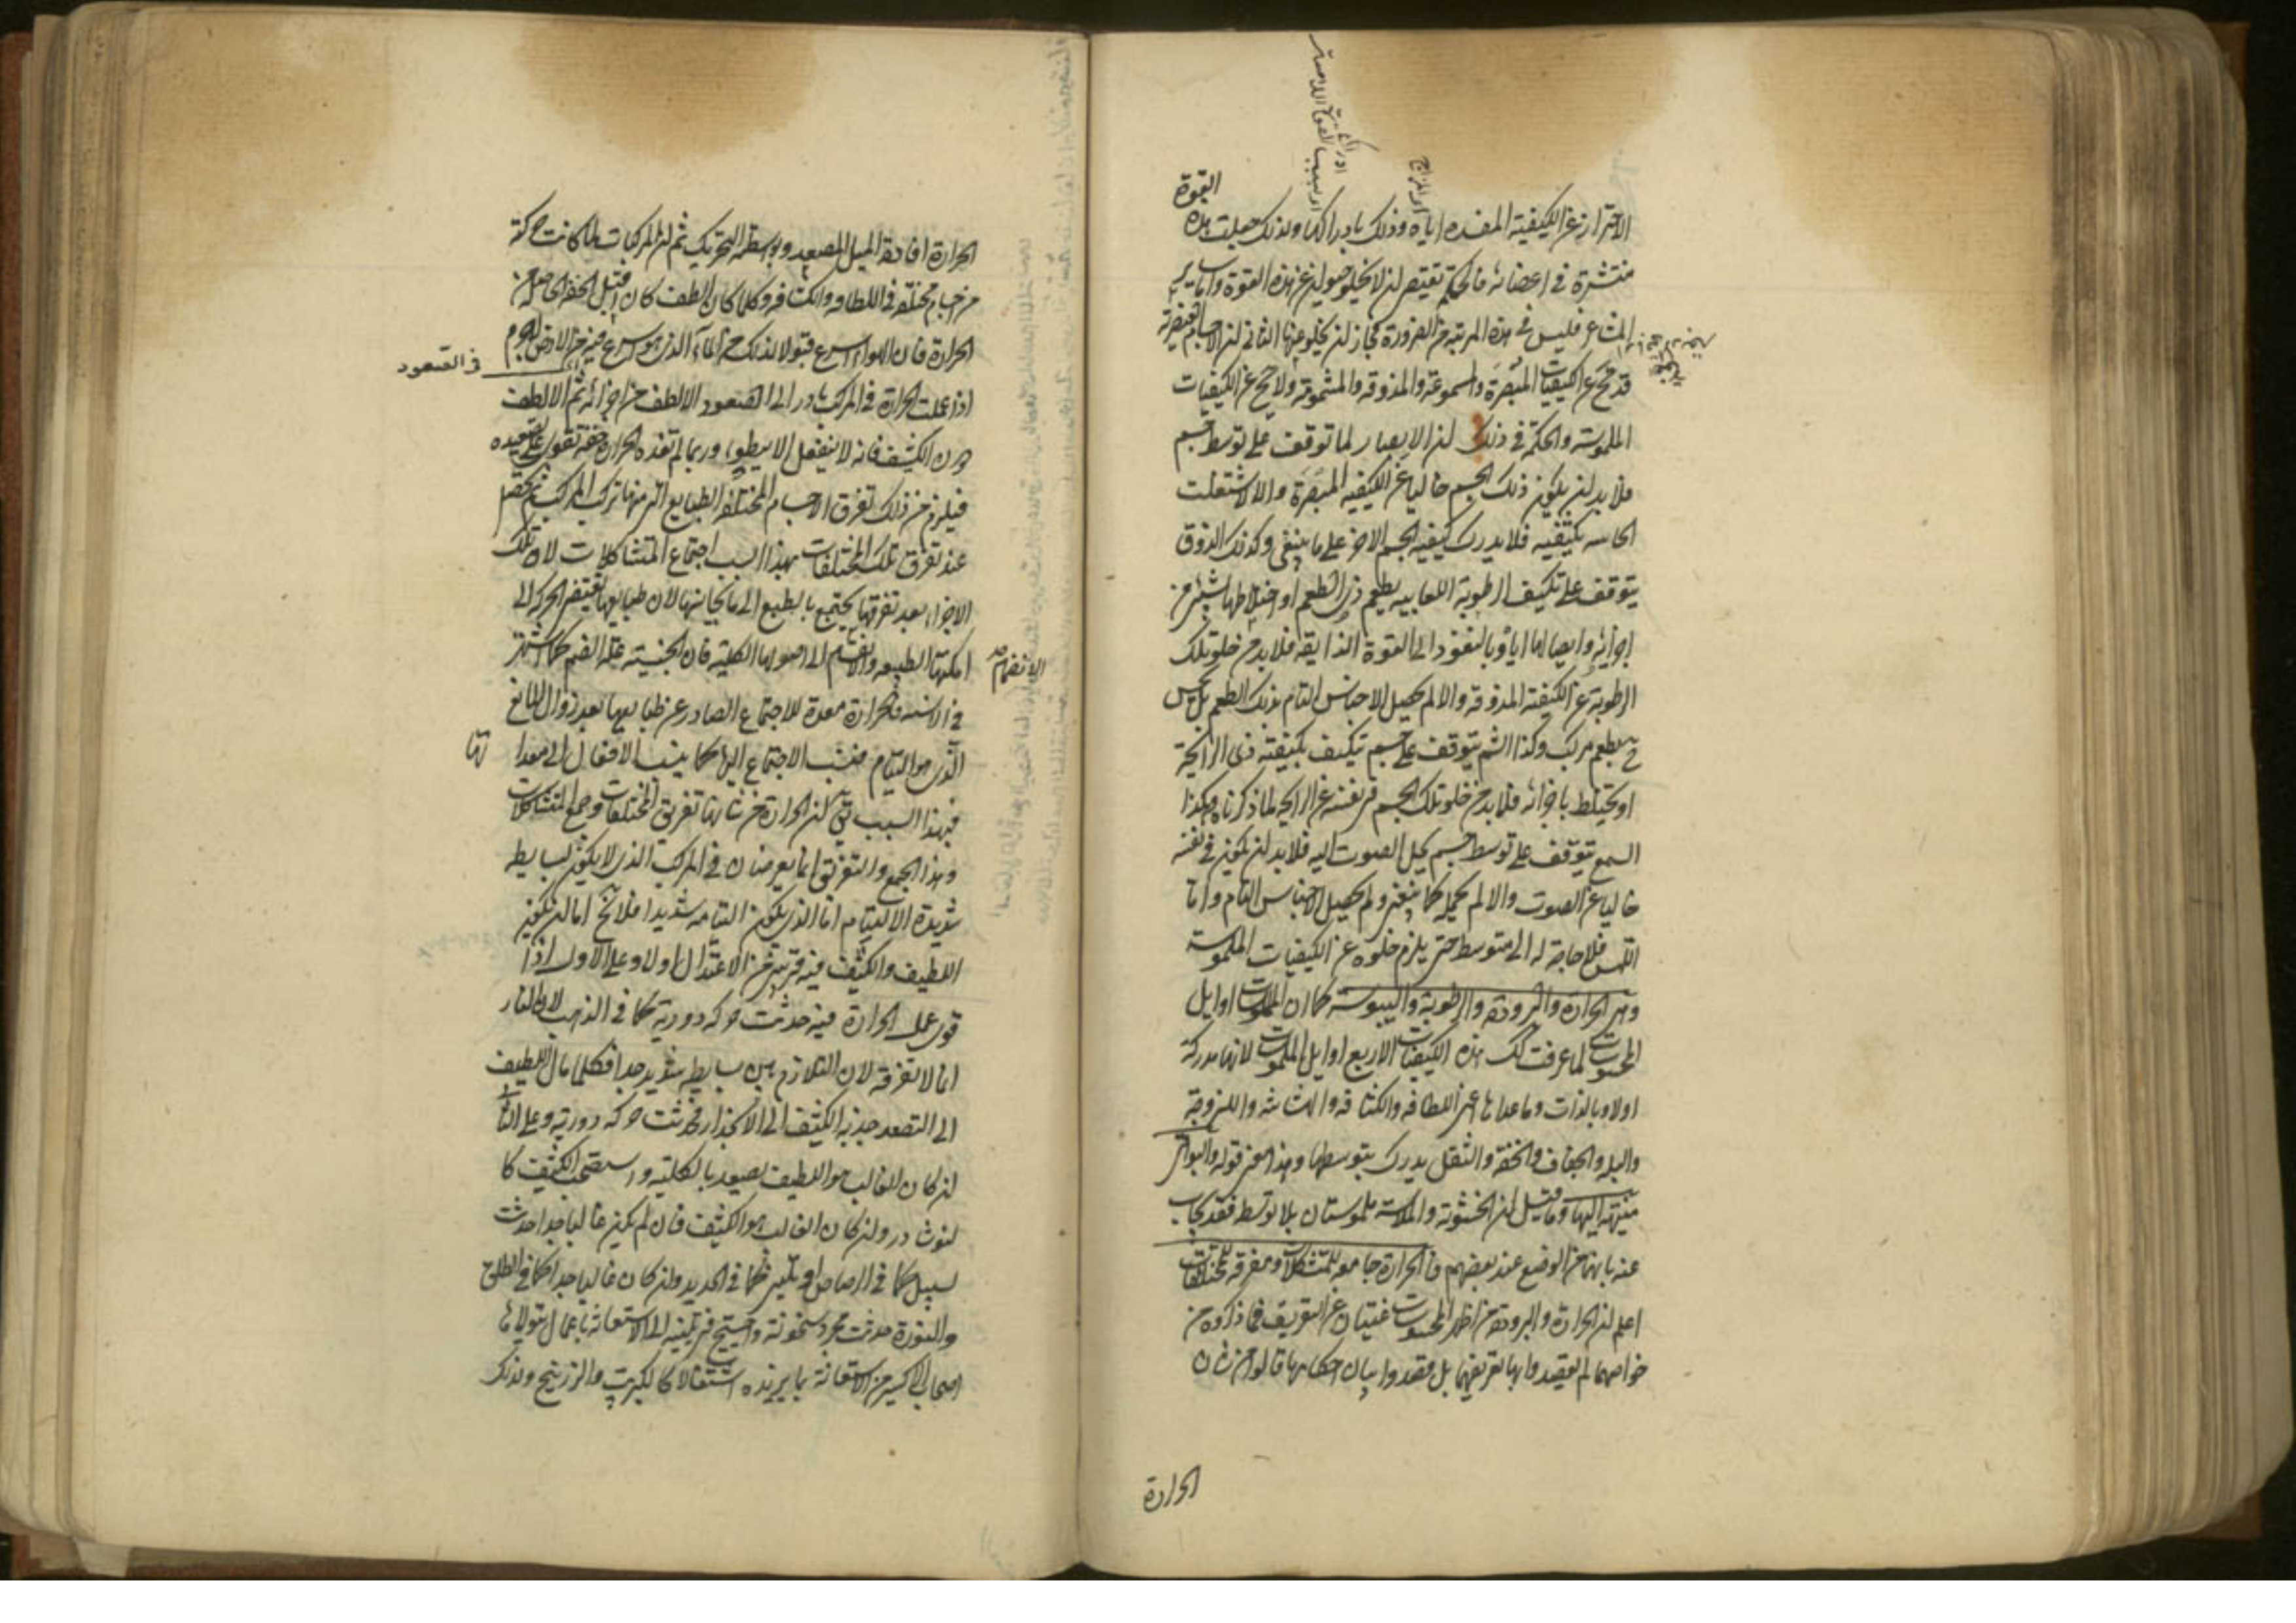 القوة
الاحتراز عن الكيفية المفسدة اياه وذلك بادراكها ولذلك جعلت هذه
منتشرة في اعضائه فالحكمة تقتضي ان لا يخلو حيوان عن هذه القوة واما سائر
المشاعر فليس في هذه المرتبة من الضرورة فجاز ان يخلو عنها الثاني ان الاجسام العنصرية
قد تخلو عن الكيفيات المبصرة والمسموعة والمذوقة والمشمومة ولا تخلو عن الكيفيات
الملموسة والحكمة في ذلك ان الابصار لما توقف على توسط جسم
فلا بد ان يكون ذلك الجسم خاليا عن الكيفية المبصرة والا لاشتغلت
الحاسه بكيفيته فلا يدرك كيفية الجسم الاخر على ما ينبغي وكذلك الذوق
يتوقف على تكيف الرطوبة اللعابيه بطعم ذي الطعم او اختلاطها بشيء من
اجزائه وايصالها اياه بالنفوذ الى القوة الذايقه فلا بد من خلو تلك
الرطوبة عن الكيفية المذوقه والا لم يحصل الاحساس التام بذلك الطعم بل يحس
ح بطعم مركب وكذا الشم يتوقف على جسم تكيف بكيفية ذي الرايحة
او يختلط باجزائه فلا بد من خلو تلك الجسم في نفسه عن الرايحه لما ذكرناه وهكذا
السمع يتوقف على توسط جسم يحمل الصوت اليه فلا بد ان يكون في نفسه
خاليا عن الصوت والا لم يحمله كما ينبغي ولم يحصل الاحساس التام واما
اللمس فلا حاجة له الى متوسط حتى يلزم خلوه عن الكيفيات الملموسة
وهي الحرارة والبرودة والرطوبة واليبوسة كما ان الملموسات اوايل
المحسوسات لما عرفت كذلك هذه الكيفيات الاربع اوايل الملموسات لانها مدركة
اولا وبالذات وما عداها اعني اللطافه والكثافه والهشاشه واللزوجة
والبله والجفاف والخفة والثقل يدرك بتوسطها وهذا معنى قوله والبواقي
منتهية اليها وما قيل ان الخشونة والملاسة ملموستان بلا توسط فقد يجاب
عنه بانهما من الوضع عند بعضهم فالحرارة جامعه للمتشاكلات ومفرقه للمختلفات
اعلم ان الحرارة والبرودة من اظهر المحسوسات غنيتان عن التعريف فما ذكروه من
خواصهما لم يقصدوا بها تعريفهما بل قصدوا بيان احكامها قالوا من شان
الحرارة
الحرارة افادة الميل المصعد وبواسطته التحريك ثم ان المركبات لما كانت مركبة
من اجسام مختلفة في اللطافه والكثافه وكلما كان الطف كان اقبل للخفة الحاصلة من
الحرارة فان الهواء اسرع قبولا لذلك من الماء الذي هو اسرع فيه من الارض لا جرم
في الصعود
اذا عملت الحرارة في المركب بادر الى الصعود الالطف من اجزائه ثم الالطف
دون الكثيف فانه لا ينفعل الا ببطوء وربما لم تفده الحرارة خفة تقوى على تصعيده
فيلزم من ذلك تفرق الاجسام المختلفة الطبايع التي منها تركب المركب ثم يحصل
عند تفرق تلك المختلفات بهذا السبب اجتماع المتشاكلات لان تلك
الاجزاء بعد تفرقها يجتمع بالطبع الى ما يجانسها لان طبايعها تقتضي الحركة الى
امكنتها الطبيعيه والانضمام الى اصولها الكلية فان الجنسية علة الضم كما اشتهر
الانضمام
في الالسنه فالحرارة معدة للاجتماع الصادر عن طبايعها بعد زوال المانع
الذي هو الالتيام فنسب الاجتماع اليها كما ينسب الافعال الى معداتها
فبهذا السبب قيل ان الحرارة من شانها تفريق المختلفات وجمع المتشاكلات
وهذا الجمع والتفريق انما يعرضان في المركب الذي لا يكون بسايطه
شديدة الالتيام اما الذي يكون التيامه شديدا فلا يخ اما ان يكون
اللطيف والكثيف فيه قريبين من الاعتدال اولا وعلى الاول اذا
قوى عمل الحرارة فيه حدثت حركة دورية كما في الذهب لان النار
انما لا تفرقه لان التلازم بين بسايطه شديد جدا فكلما مال اللطيف
الى التصعد جذبه الكثيف الى الانحدار فحدثت حركة دورية وعلى الثاني
ان كان الغالب هو اللطيف يصعد بالكلية واستصحب الكثيف كا
لنوشادر وان كان الغالب هو الكثيف فان لم يكن غالبا جدا حدثت
سيل كما في الرصاص او تليين كما في الحديد وان كان غالبا جدا كما في الطلق
والنورة حدثت مجرد سخونة واحتيج في تليينه الى الاستعانة باعمال يتولاها
اصحاب الاكسير من الاستعانة بما يزيده اشتعالا كالكبريت والزرنيخ ولذلك